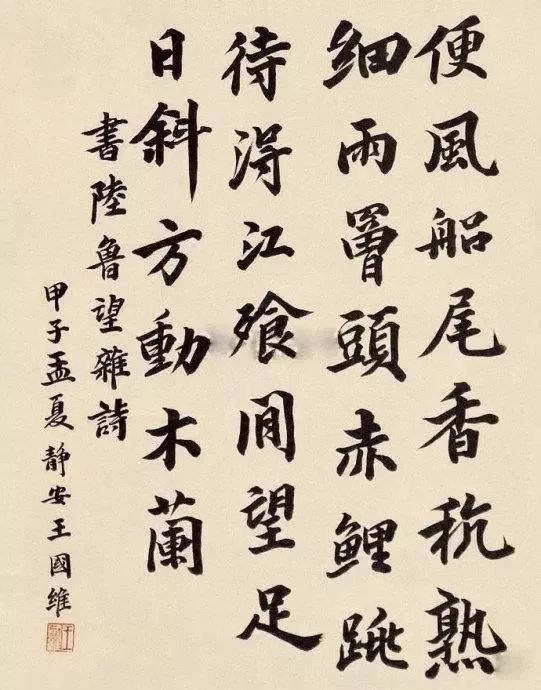 便風船尾香秔熟
細雨罾頭赤鯉跳
待淂江飱閒望足
日斜方動木蘭
書陸魯望雜詩
甲子孟夏靜安王國維